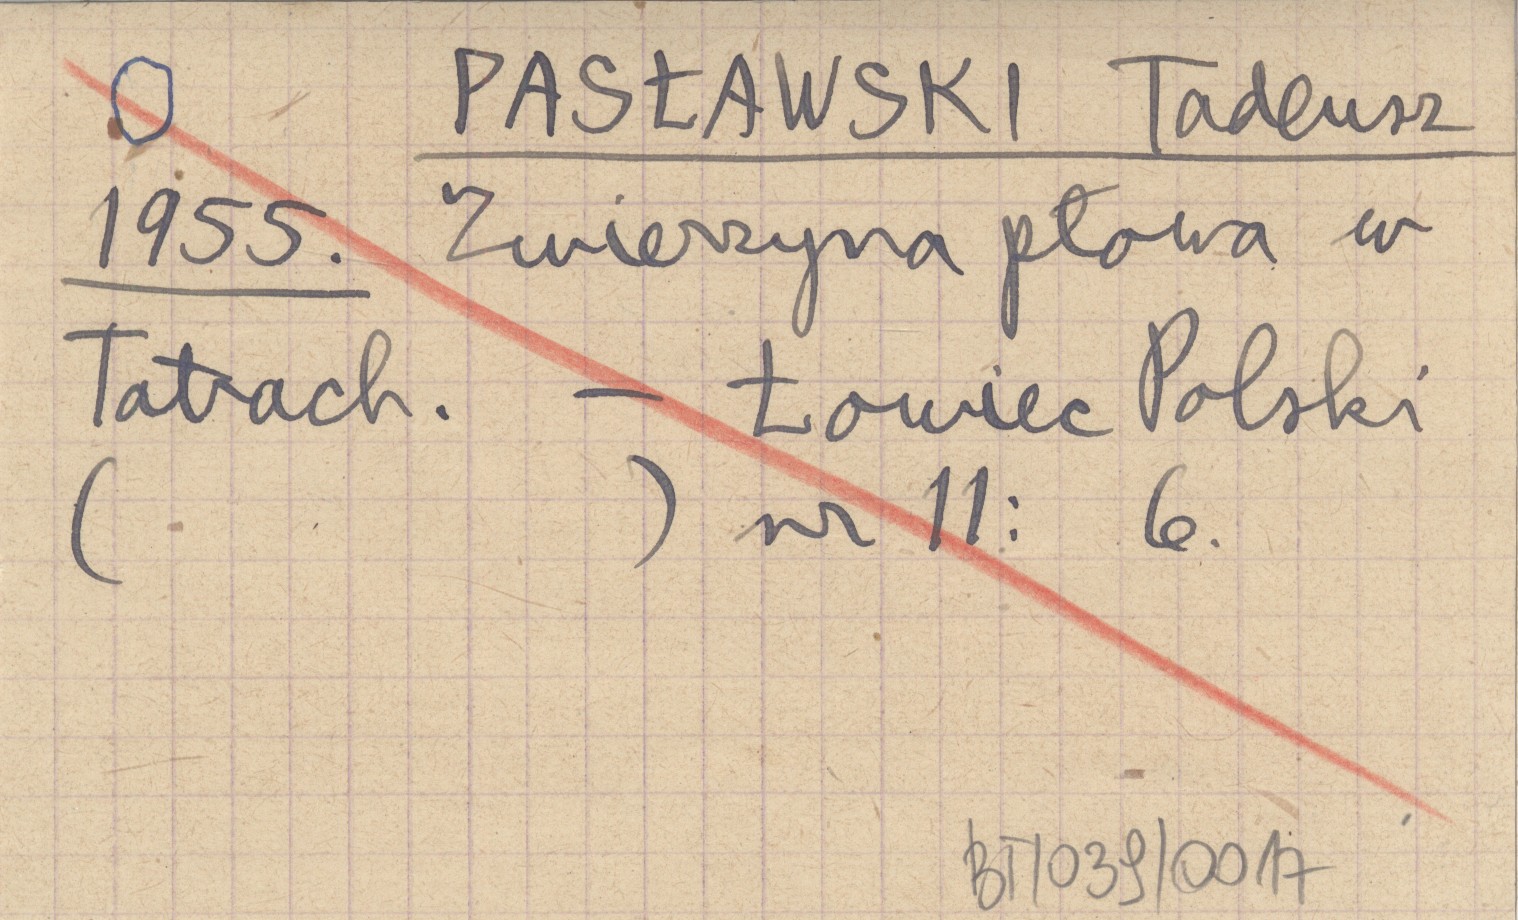 O PASŁAWSKI Tadeusz
1955. Zwierzyna płowa w
Tatrach. — Łowiec Polski
( ) nr 11: 6.
BT/039/0017